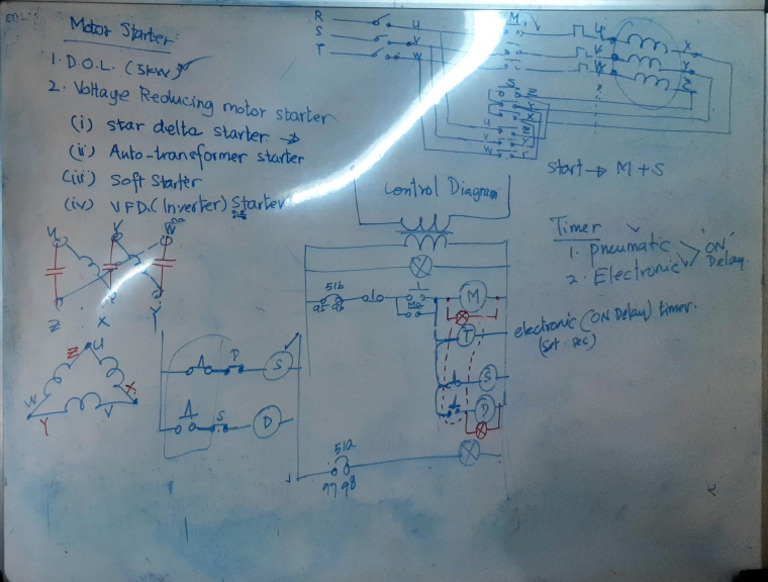 Motor Starter
1. D.O.L. (5kW)
2. Voltage Reducing motor starter
(i) star delta starter →
(ii) Auto-transformer starter
(iii) Soft Starter
(iv) V.F.D. (Inverter) Starter
R
S
T
U
V
W
M
U
V
W
X
Y
Z
S
U
V
W
start → M + S
Control Diagram
Timer
1. Pneumatic
2. Electronic
'ON' Delay
U V W
Z X Y
Z U
W X
Y V
D S
S D
51b
95 96
M
T
electronic (ON Delay) timer.
(set sec)
S
D
51a
97 98